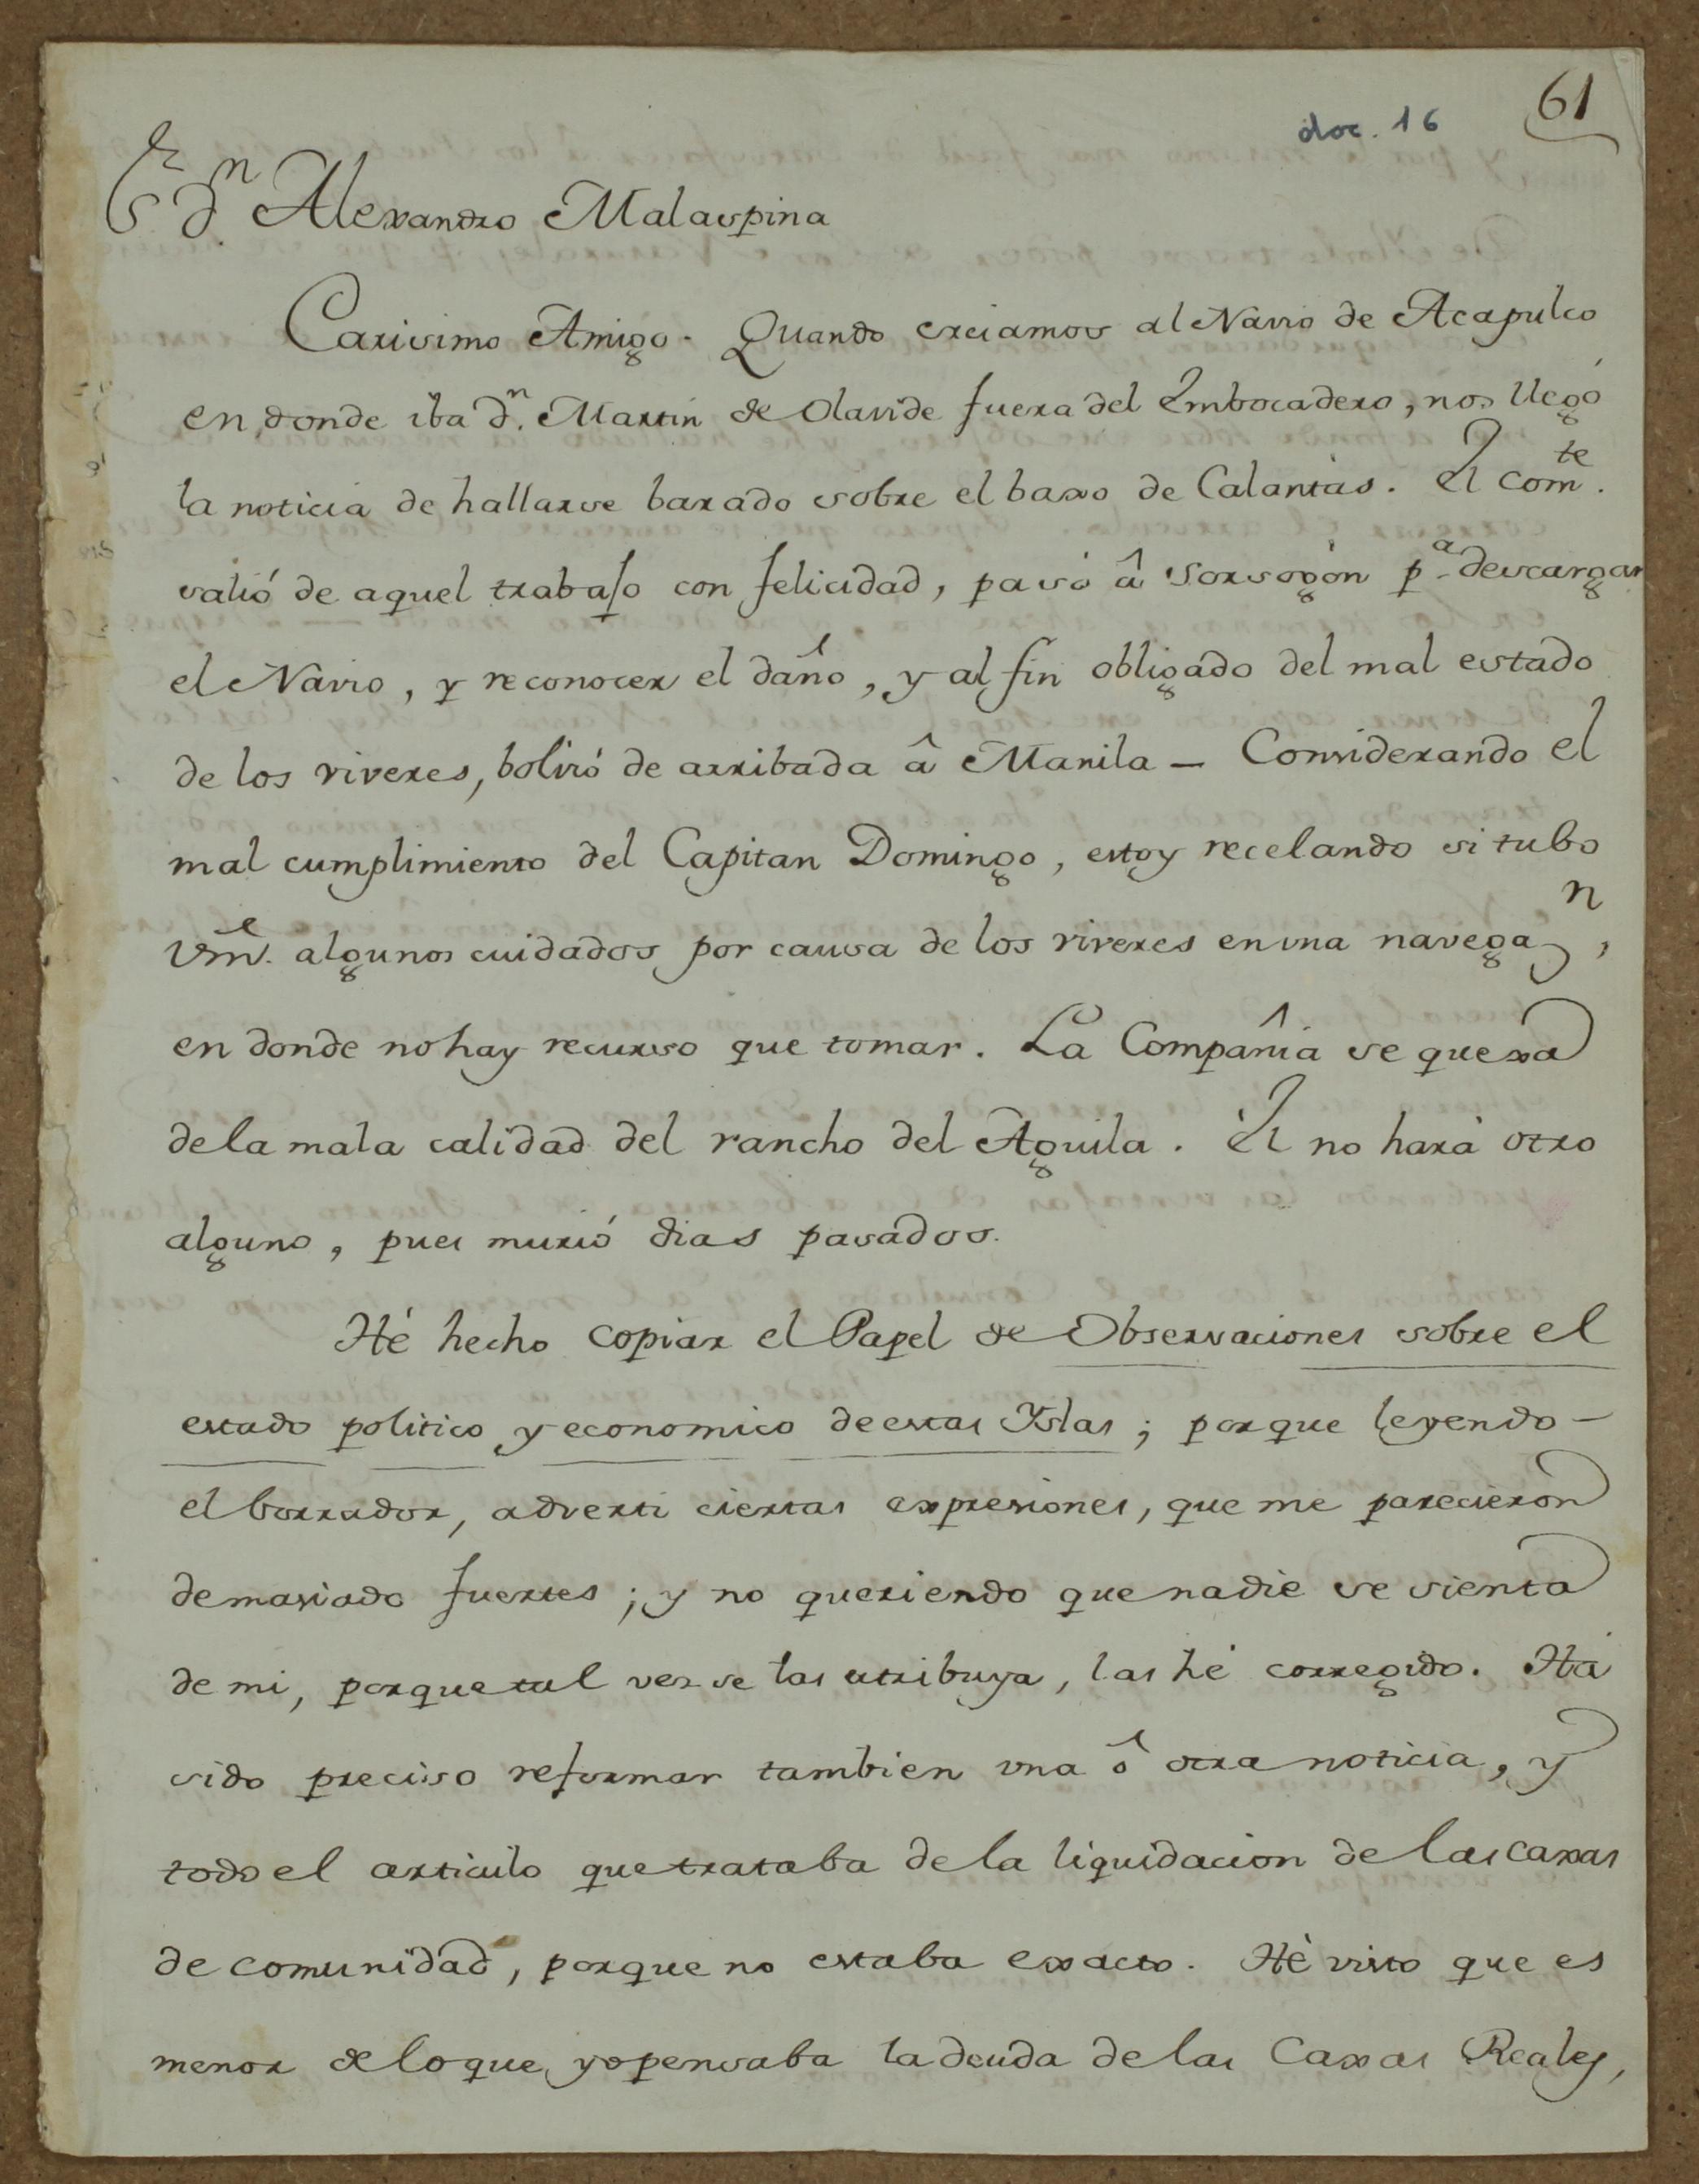 doc. 16
61
S.r D.n Alexandro Malaspina
Carisimo Amigo. Quando creiamos al Navio de Acapulco
en donde iba d.n Martin de Olavide fuera del Embocadero, nos llegó
la noticia de hallarse barado sobre el baxo de Calantás. El Com.te
salió de aquel trabajo con felicidad, pasó â Sorsogón p.a descargar
el Navio, y reconocer el daño, y al fin obligado del mal estado
de los viveres, bolvió de arribada â Manila – Considerando el
mal cumplimiento del Capitan Domingo, estoy recelando si tubo
Vm.e algunos cuidados por causa de los viveres en una navegaz.n,
en donde no hay recurso que tomar. La Compañia se quexa
de la mala calidad del rancho del Aguila. El no hará otro
alguno, pues murió dias pasados.
Hé hecho copiar el Papel de Observaciones sobre el
estado politico y economico de estas Yslas; porque leyendo –
el borrador, adverti ciertas expresiones, que me parecieron
demasiado fuertes; y no queriendo que nadie se sienta
de mi, porque tal vez se las atribuya, las hé corregido. Há
sido preciso reformar tambien una ô otra noticia, y
todo el articulo que trataba de la liquidacion de las caxas
de comunidad, porque no estaba exacto. Hé visto que es
menor de lo que yo pensaba la deuda de las Caxas Reales,